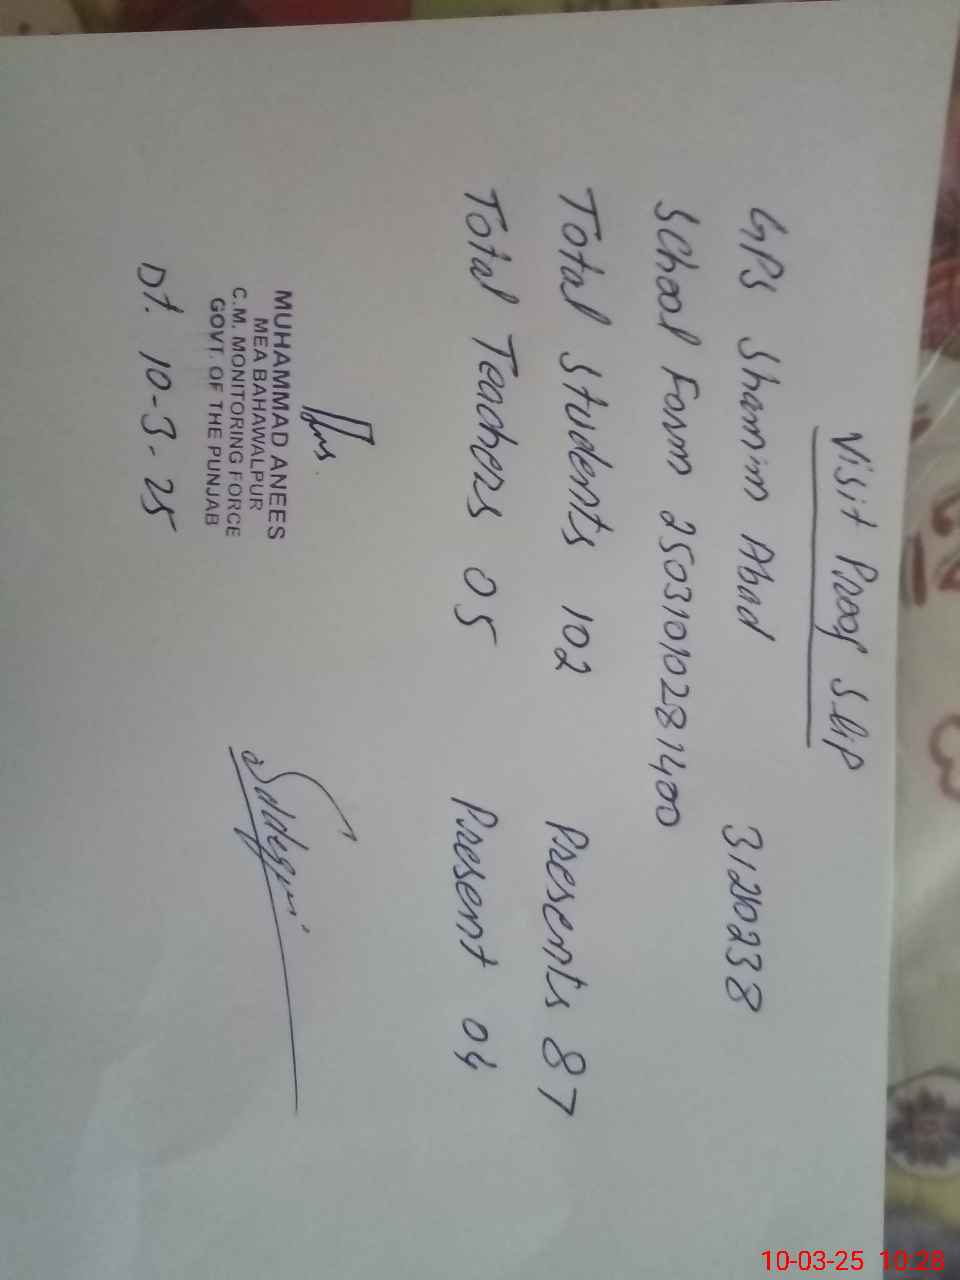 Visit Proof Slip
GPS Shamim Abad 31210238
School Form 25031010281400
Total Students 102 Presents 87
Total Teachers 05 Present 04
MUHAMMAD ANEES
MEA BAHAWALPUR
C.M. MONITORING FORCE
GOVT. OF THE PUNJAB
Dt. 10-3-25
10-03-25 10:28